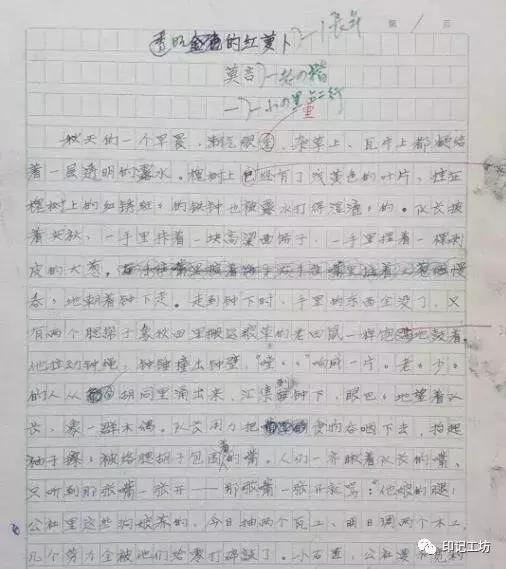 第 1 页
透明的红萝卜
莫言
一
秋天的一个早晨,潮气很重,杂草上、瓦片上都凝结
着一层透明的露水。槐树上已经有了浅黄色的叶片,挂在
槐树上的红锈斑斑的铁钟也被露水打得湿漉漉的。队长披
着夹袄,一手里拤着一块高粱面饼子,一手里捏着一棵剥
皮的大葱,慢
吞吞地朝着钟下走。走到钟下时,手里的东西全没了,只
有两个腮帮子象秋田里搬运粮草的老田鼠一样饱满地鼓着。
他拉动钟绳,钟锤撞击钟壁,"嘡嘡嘡"响成一片。老老少少
的人从胡同里涌出来,汇集到钟下,眼巴巴地望着队
长,象一群木偶。队长用力把食物吞咽下去,抬起
袖子擦擦被络腮胡子包围着的嘴。人们一齐瞅着队长的嘴,
只听到那张嘴一张开——那张嘴一张开就骂:"他娘的腿!
公社里这些狗娘养的,今日抽两个瓦工,明日调两个木工,
几个劳力全被他们给零打碎敲了。小石匠,公社要
印记工坊